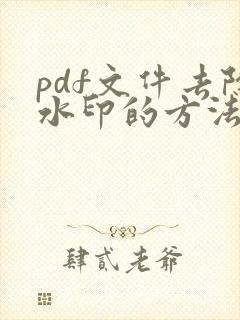 pdf文件去除
水印的方法
肆贰老爷